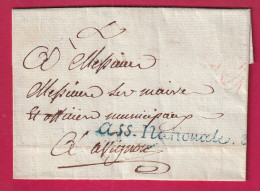 A Messieurs
Messieurs les maire
et officiers municipaux
Ass. Nationale.
A avignon